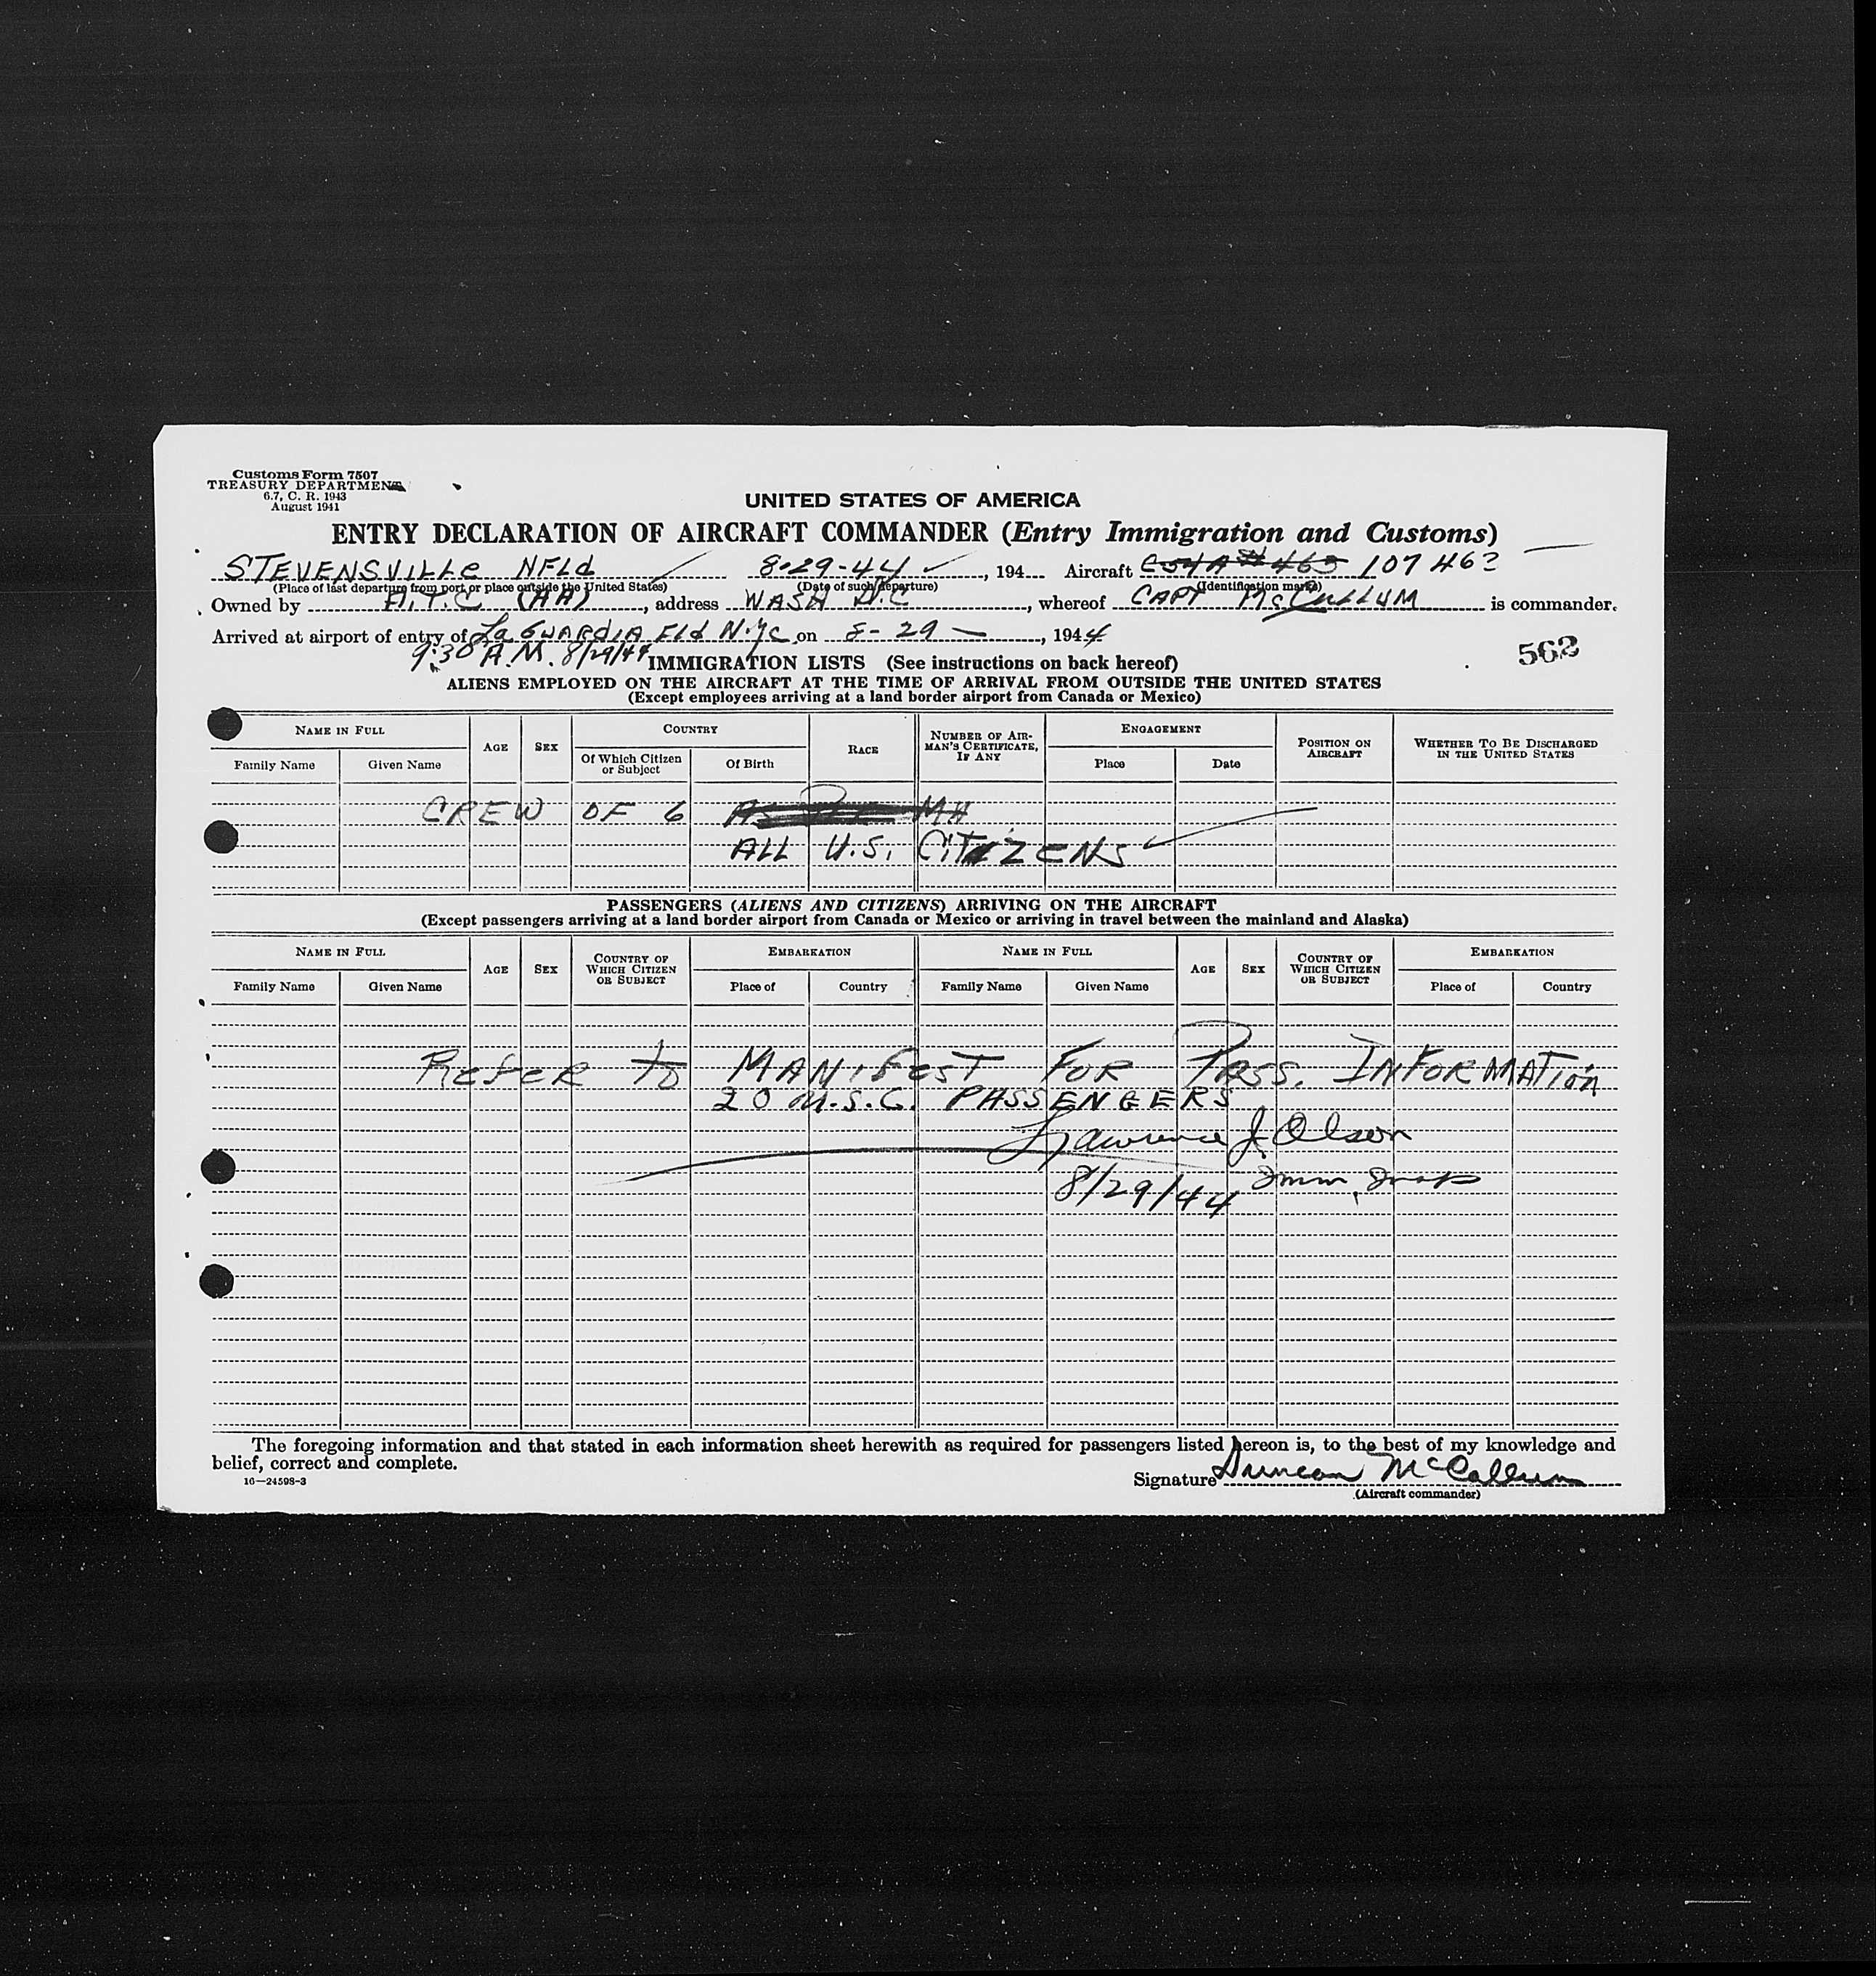 Customs Form 7507
TREASURY DEPARTMENT
6.7, C. R. 1943
August 1941
UNITED STATES OF AMERICA
ENTRY DECLARATION OF AIRCRAFT COMMANDER (Entry Immigration and Customs)
STEVENSVILLE NFLd 8-29-44, 194 Aircraft C54A # 465 107463
(Place of last departure from port or place outside the United States) (Date of such departure) (Identification marks)
Owned by A.T.C (AA), address WASH D.C, whereof CAPT McCULLUM is commander.
Arrived at airport of entry of La GUARDIA FLd N.Y.C. on 8-29, 1944
9:30 A.M. 8/29/44 IMMIGRATION LISTS (See instructions on back hereof) 562
ALIENS EMPLOYED ON THE AIRCRAFT AT THE TIME OF ARRIVAL FROM OUTSIDE THE UNITED STATES
(Except employees arriving at a land border airport from Canada or Mexico)
NAME IN FULL AGE SEX COUNTRY RACE NUMBER OF AIRMAN'S CERTIFICATE, IF ANY ENGAGEMENT POSITION ON AIRCRAFT WHETHER TO BE DISCHARGED IN THE UNITED STATES
Family Name Given Name Of Which Citizen or Subject Of Birth Place Date
CREW OF 6
ALL U.S. CITIZENS
PASSENGERS (ALIENS AND CITIZENS) ARRIVING ON THE AIRCRAFT
(Except passengers arriving at a land border airport from Canada or Mexico or arriving in travel between the mainland and Alaska)
NAME IN FULL AGE SEX COUNTRY OF WHICH CITIZEN OR SUBJECT EMBARKATION NAME IN FULL AGE SEX COUNTRY OF WHICH CITIZEN OR SUBJECT EMBARKATION
Family Name Given Name Place of Country Family Name Given Name Place of Country
Refer to MANiFesT FOR Pass. INFORMATion
20 U.S.C. PASSENGERS
Lawrence J. Olson
8/29/44 Imm. Insp
The foregoing information and that stated in each information sheet herewith as required for passengers listed hereon is, to the best of my knowledge and
belief, correct and complete.
16—24598-3
Signature Duncan McCallum
(Aircraft commander)